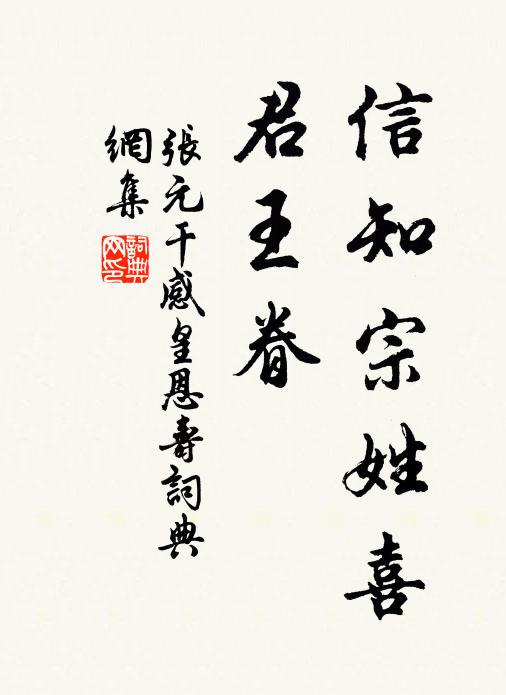 信知宗姓喜
君王眷
張元干感皇恩壽詞典
網集
詞典網印